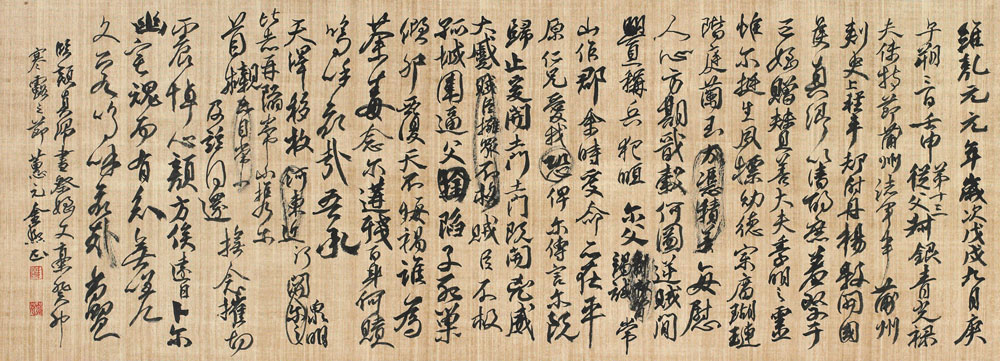 維乾元元年歲次戊戌九月庚
午朔三日壬申第十三從父叔銀青光祿
夫使持節蒲州諸軍事蒲州
刺史上輕車都尉丹楊縣開國
侯真卿以清酌庶羞祭于
亡姪贈贊善大夫季明之靈
惟爾挺生夙標幼德宗廟瑚璉
階庭蘭玉方憑積善每慰
人心方期戩穀何圖逆賊間
釁稱兵犯順爾父竭誠常
山作郡余時受命亦在平
原仁兄愛我恐俾爾傳言爾既
歸止爰開土門土門既開兇威
大蹙賊臣擁眾不救賊臣不救
孤城圍逼父陷子死巢
傾卵覆天不悔禍誰為
荼毒念爾遘殘百身何贖
嗚乎哀哉吾承
天澤移牧河東近河關泉明
比者再陷常山攜爾
首櫬及茲同還撫念摧切
震悼心顏方俟遠日卜爾
幽宅魂而有知無嗟
久客嗚呼哀哉尚饗
臨顏真卿書祭姪文稿癸卯
寒露之節慧元書